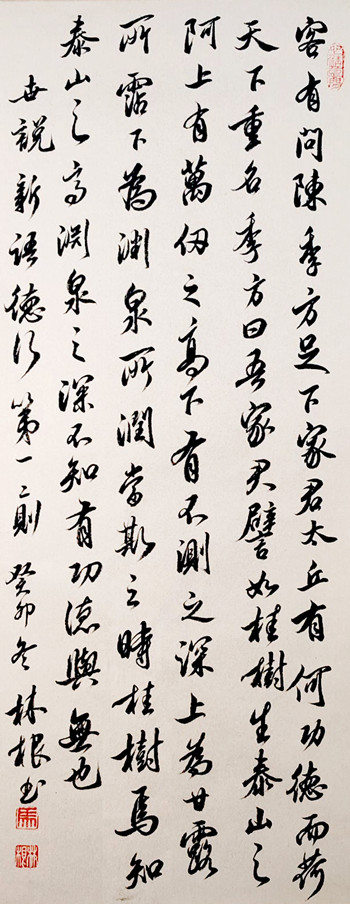 客有問陳季方足下家君太丘有何功德而荷
天下重名季方曰吾家君譬如桂樹生泰山之
阿上有萬仞之高下有不測之深上為甘露
所霑下為淵泉所潤當斯之時桂樹焉知
泰山之高淵泉之深不知有功德與無也
世說新語德行第一二則 癸卯冬 林根书